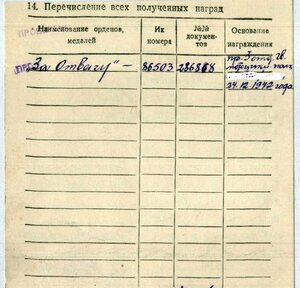 14. Перечисление всех полученных наград
Наименование орденов, медалей
Их номера
№№ докумен-тов
Основание награждения
"За Отвагу" — 86503 286868 пр.
полк
24.12.1942 года